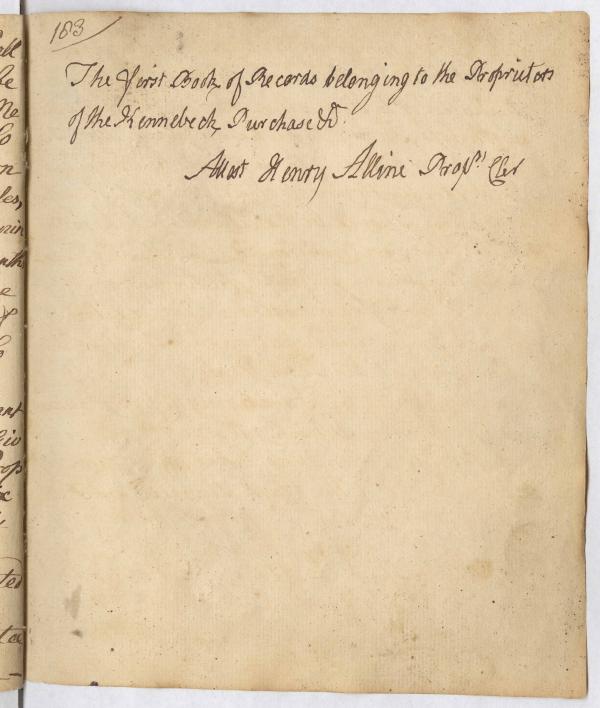 163
The first Book of Records belonging to the Proprietors
of the Kennebeck Purchase &c.
Attest Henry Alline Prop.rs Cler